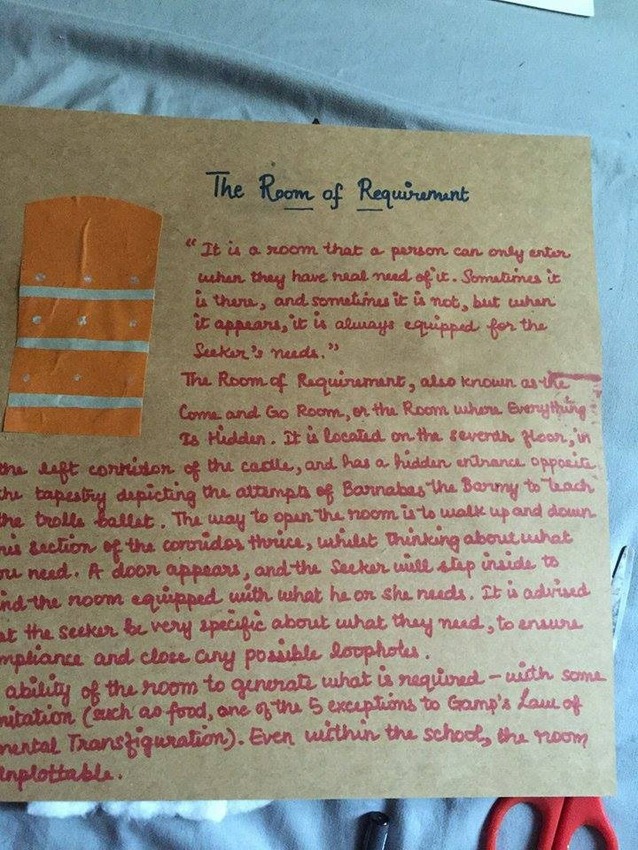 The Room of Requirement
"It is a room that a person can only enter
when they have real need of it. Sometimes it
is there, and sometimes it is not, but when
it appears, it is always equipped for the
Seeker's needs."
The Room of Requirement, also known as the
Come and Go Room, or the Room where Everything
Is Hidden. It is located on the seventh floor, in
the left corridor of the castle, and has a hidden entrance opposite
the tapestry depicting the attempts of Barnabas the Barmy to teach
the trolls ballet. The way to open the room is to walk up and down
his section of the corridor thrice, whilst thinking about what
ou need. A door appears, and the Seeker will step inside to
ind the room equipped with what he or she needs. It is advised
at the seeker be very specific about what they need, to ensure
mpliance and close any possible loopholes.
ability of the room to generate what is required - with some
mitation (such as food, one of the 5 exceptions to Gamp's Law of
mental Transfiguration). Even within the school, the room
unplottable.